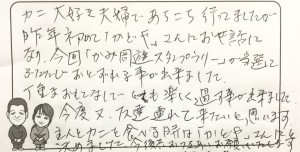 カニ大好き夫婦であちこち行ってましたが
昨年初めて「かどや」さんにお世話に
なり、今回「かみ周遊スタンプラリー」が当選して
ふたたびおとずれる事が出来ました。
丁重なおもてなしで とても楽しく過す事が出来ました
今度又、友達連れて来たいと思います
まんとカニを食べる時は「かどや」さんに
決めました 今後共よろしくお願いいたします